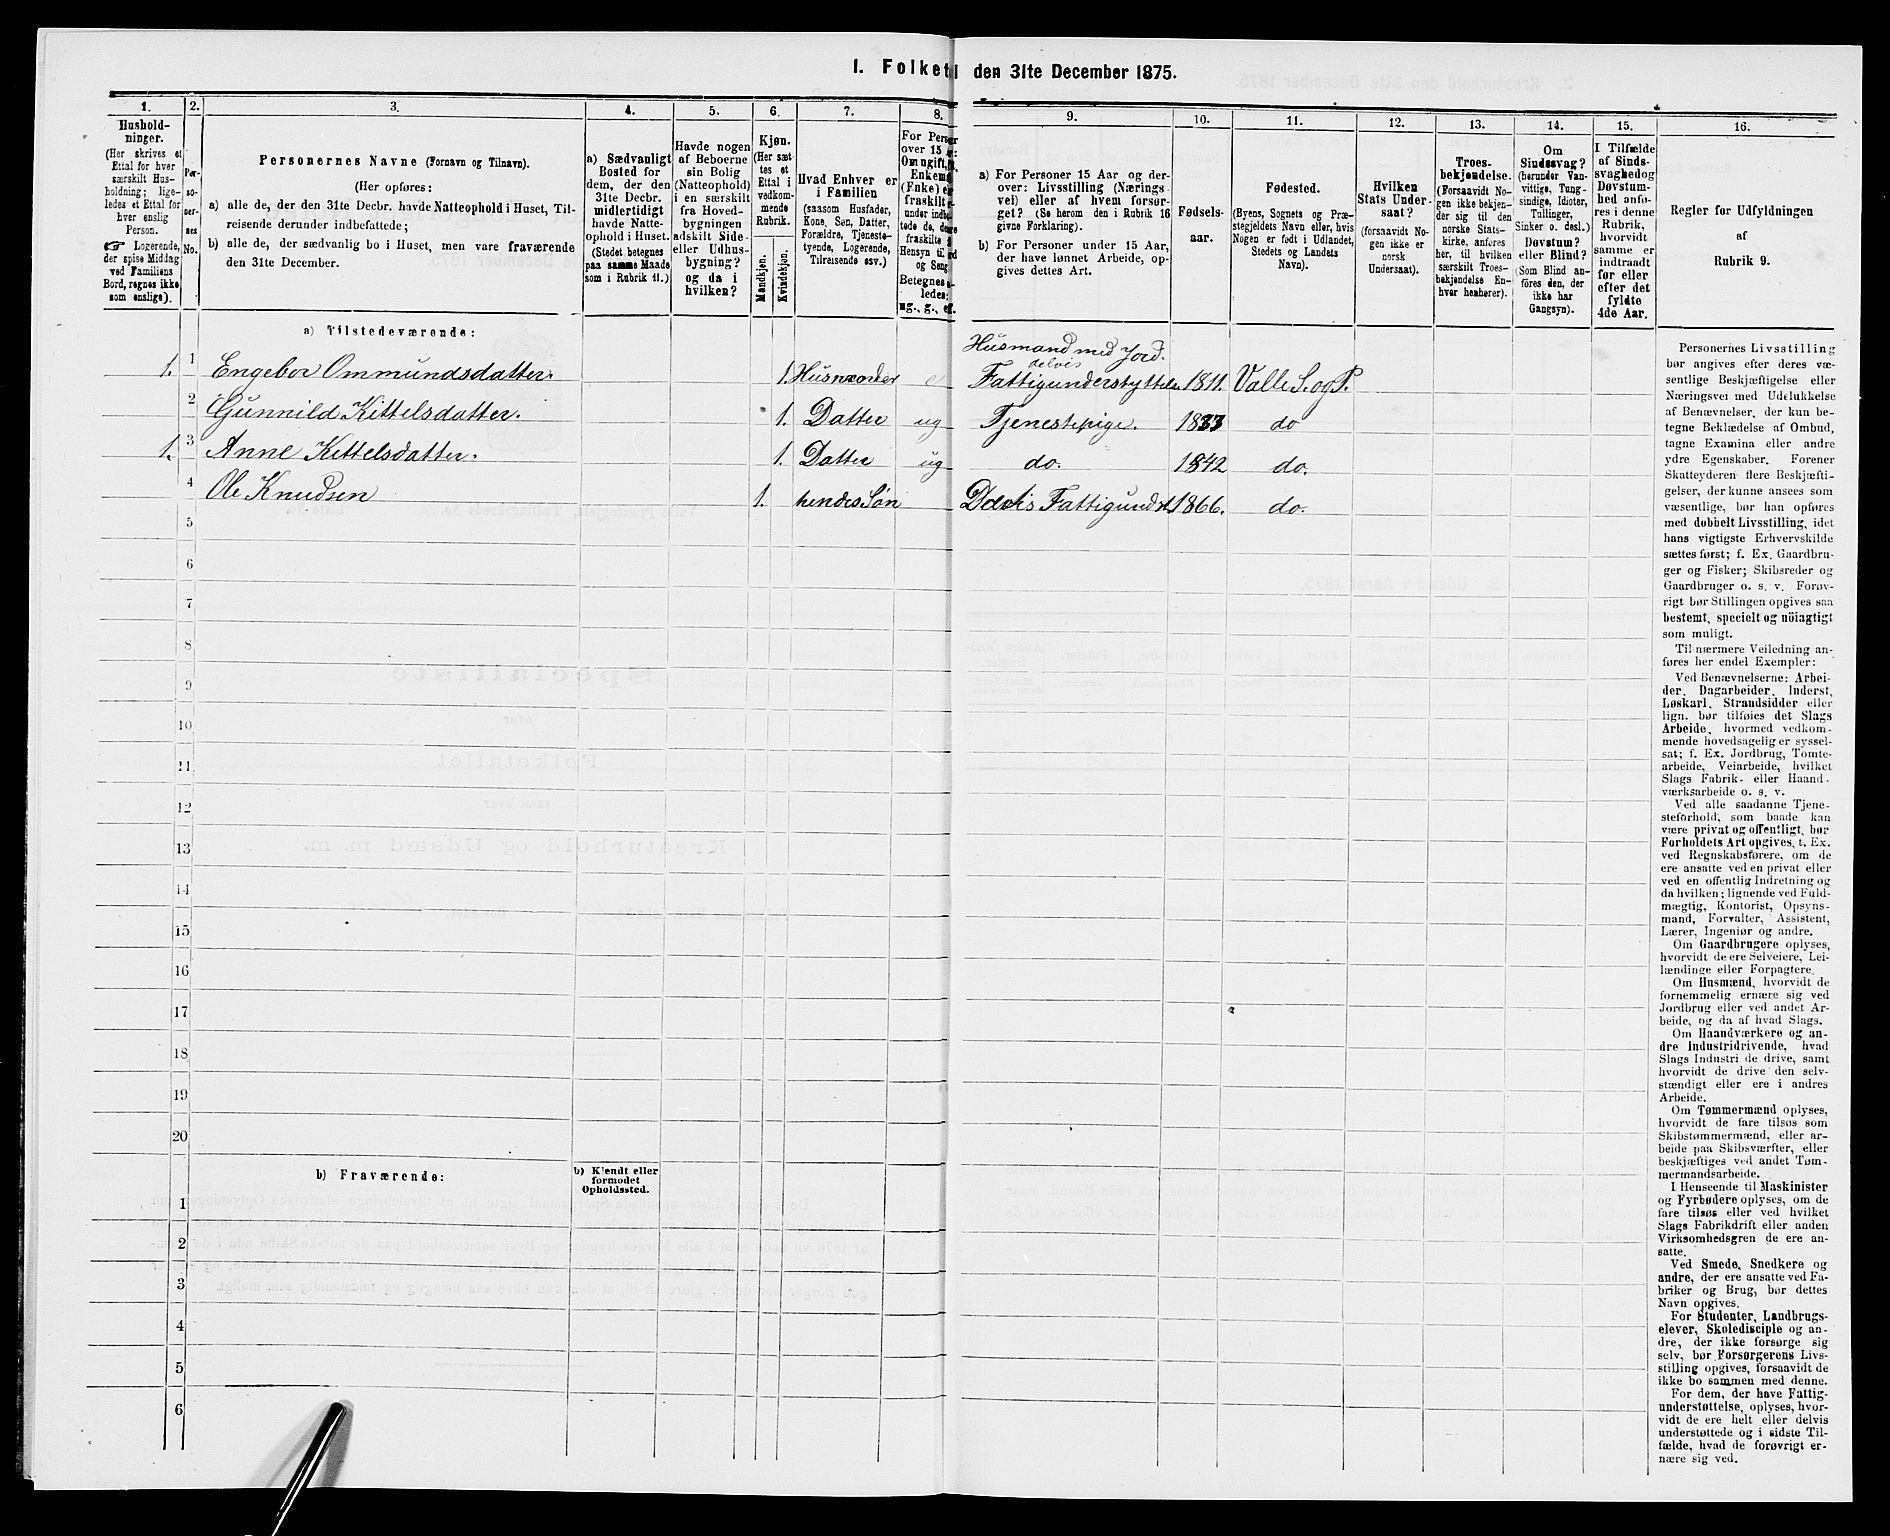 1. Folket den 31te December 1875.
1. 2. 3. 4. 5. 6. 7. 8. 9. 10. 11. 12. 13. 14. 15. 16.
Hushold-
ninger.
(Her skrives et
Ettal for hver
særskilt Hus-
holdning; lige-
ledes et Ettal for
hver enslig
Person.
☞ Logerende,
der spise Middag
ved Familiens
Bord, regnes ikke
som enslige).
Per-
so-
ner-
nes
No.
Personernes Navne (Fornavn og Tilnavn).
(Her opføres:
a) alle de, der den 31te Decbr. havde Natteophold i Huset, Til-
reisende derunder indbefattede;
b) alle de, der sædvanlig bo i Huset, men vare fraværende
den 31te December.
a) Sædvanligt
Bosted for
dem, der den
31te Decbr.
midlertidigt
havde Natte-
ophold i Huset.
(Stedet betegnes
paa samme Maade
som i Rubrik 11.)
Havde nogen
af Beboerne
sin Bolig
(Natteophold)
i en særskilt
fra Hoved-
bygningen
adskilt Side-
eller Udhus-
bygning?
og da i
hvilken?
Kjøn.
(Her sæt-
tes et
Ettal i
vedkom-
mende
Rubrik.
Mandkjøn.
Kvindekjøn.
Hvad Enhver er
i Familien
(saasom Husfader,
Kone, Søn, Datter,
Forældre, Tjeneste-
tyende, Logerende,
Tilreisende osv.)
For Perso
over 15
Om ugift,
Enkema
(Enke) e
fraskilt
a) For Personer 15 Aar og der-
over: Livsstilling (Nærings
vei) eller af hvem forsør-
get? (Se herom den i Rubrik 16
givne Forklaring).
b) For Personer under 15 Aar,
der have lønnet Arbeide, op-
gives dettes Art.
Fødsels-
aar.
Fødested.
(Byens, Sognets og Præ-
stegjeldets Navn eller, hvis
Nogen er født i Udlandet,
Stedets og Landets
Navn).
Hvilken
Stats Under-
saat?
(forsaavidt No-
gen ikke er
norsk
Undersaat).
Troes-
bekjendelse.
(Forsaavidt No-
gen ikke bekjen-
der sig til den
norske Stats-
kirke, anføres
her, til hvilken
særskilt Troes-
bekjendelse En-
hver henhører).
Om
Sindssvag?
(herunder Van-
vittige, Tung-
sindige, Idioter,
Tullinger,
Sinker o. desl.)
Døvstum?
eller Blind?
(Som Blind an-
føres den, der
ikke har
Gangsyn).
I Tilfælde
af Sinds-
svaghed og
Døvstum-
hed anfø-
res i denne
Rubrik,
hvorvidt
samme er
indtraadt
før eller
efter det
fyldte
4de Aar.
Regler for Udfyldningen
af
Rubrik 9.
a) Tilstedeværende:
Husmand med Jord.
delvis
1. 1 Engebor Ommundsdatter. 1. Husmoder e Fattigunderstyttels. 1811. Valle S. og P.
2 Gunnild Kittelsdatter. 1. Datter ug Tjenestepige. 1833 do
1. 3 Anne Kittelsdatter. 1. Datter ug do. 1842 do.
4 Ole Knudsen 1. hendes Søn Delvis Fattigundst. 1866. do.
5
6
7
8
9
10
11
12
13
14
15
16
17
18
19
20
b) Fraværende:
b) Kjendt eller
formodet
Opholdssted.
1
2
3
4
5
6
Personernes Livsstilling
bør angives efter deres væ-
sentlige Beskjæftigelse eller
Næringsvei med Udelukkelse
af Benævnelser, der kun be-
tegne Beklædelse af Ombud,
tagne Examina eller andre
ydre Egenskaber. Forener
Skatteyderen flere Beskjæfti-
gelser, der kunne ansees som
væsentlige, bør han opføres
med dobbelt Livsstilling, idet
hans vigtigste Erhvervskilde
sættes først; f. Ex. Gaardbru-
ger og Fisker; Skibsreder og
Gaardbruger o. s. v. Forøv-
rigt bør Stillingen opgives saa
bestemt, specielt og nöiagtigt
som muligt.
Til nærmere Veiledning an-
føres her endel Exempler:
Ved Benævnelserne: Arbei-
der, Dagarbeider, Inderst,
Løskarl, Strandsidder eller
lign. bør tilføies det Slags
Arbeide, hvormed vedkom-
mende hovedsagelig er syssel-
sat; f. Ex. Jordbrug, Tomte-
arbeide, Veiarbeide, hvilket
Slags Fabrik- eller Haand-
værksarbeide o. s. v.
Ved alle saadanne Tjene-
steforhold, som baade kan
være privat og offentligt, bør
Forholdets Art opgives, t. Ex.
ved Regnskabsførere, om de
ere ansatte ved en privat eller
ved en offentlig Indretning og
da hvilken; lignende ved Fuld-
mægtig, Kontorist, Opsyns-
mand, Forvalter, Assistent,
Lærer, Ingeniør og andre.
Om Gaardbrugere oplyses,
hvorvidt de ere Selveiere, Lei-
lændinge eller Forpagtere.
Om Husmænd, hvorvidt de
fornemmelig ernære sig ved
Jordbrug eller ved andet Ar-
beide, og da af hvad Slags.
Om Haandværkere og an-
dre Industridrivende, hvad
Slags Industri de drive, samt
hvorvidt de drive den selv-
stændigt eller ere i andres
Arbeide.
Om Tømmermænd oplyses,
hvorvidt de fare tilsøs som
Skibstømmermænd, eller ar-
beide paa Skibsværfter, eller
beskjæftiges ved andet Tøm-
mermandsarbeide.
I Henseende til Maskinister
og Fyrbødere oplyses, om de
fare tilsøs eller ved hvilket
Slags Fabrikdrift eller anden
Virksomhedsgren de ere an-
satte.
Ved Smede, Snedkere og
andre, der ere ansatte ved Fa-
briker og Brug, bør dettes
Navn opgives.
For Studenter, Landbrugs-
elever, Skoledisciple og an-
dre, der ikke forsørge sig
selv, bør Forsørgerens Livs-
stilling opgives, forsaavidt de
ikke bo sammen med denne.
For dem, der have Fattig-
understøttelse, oplyses, hvor-
vidt de ere helt eller delvis
understøttede og i sidste Til-
fælde, hvad de forøvrigt er-
nære sig ved.